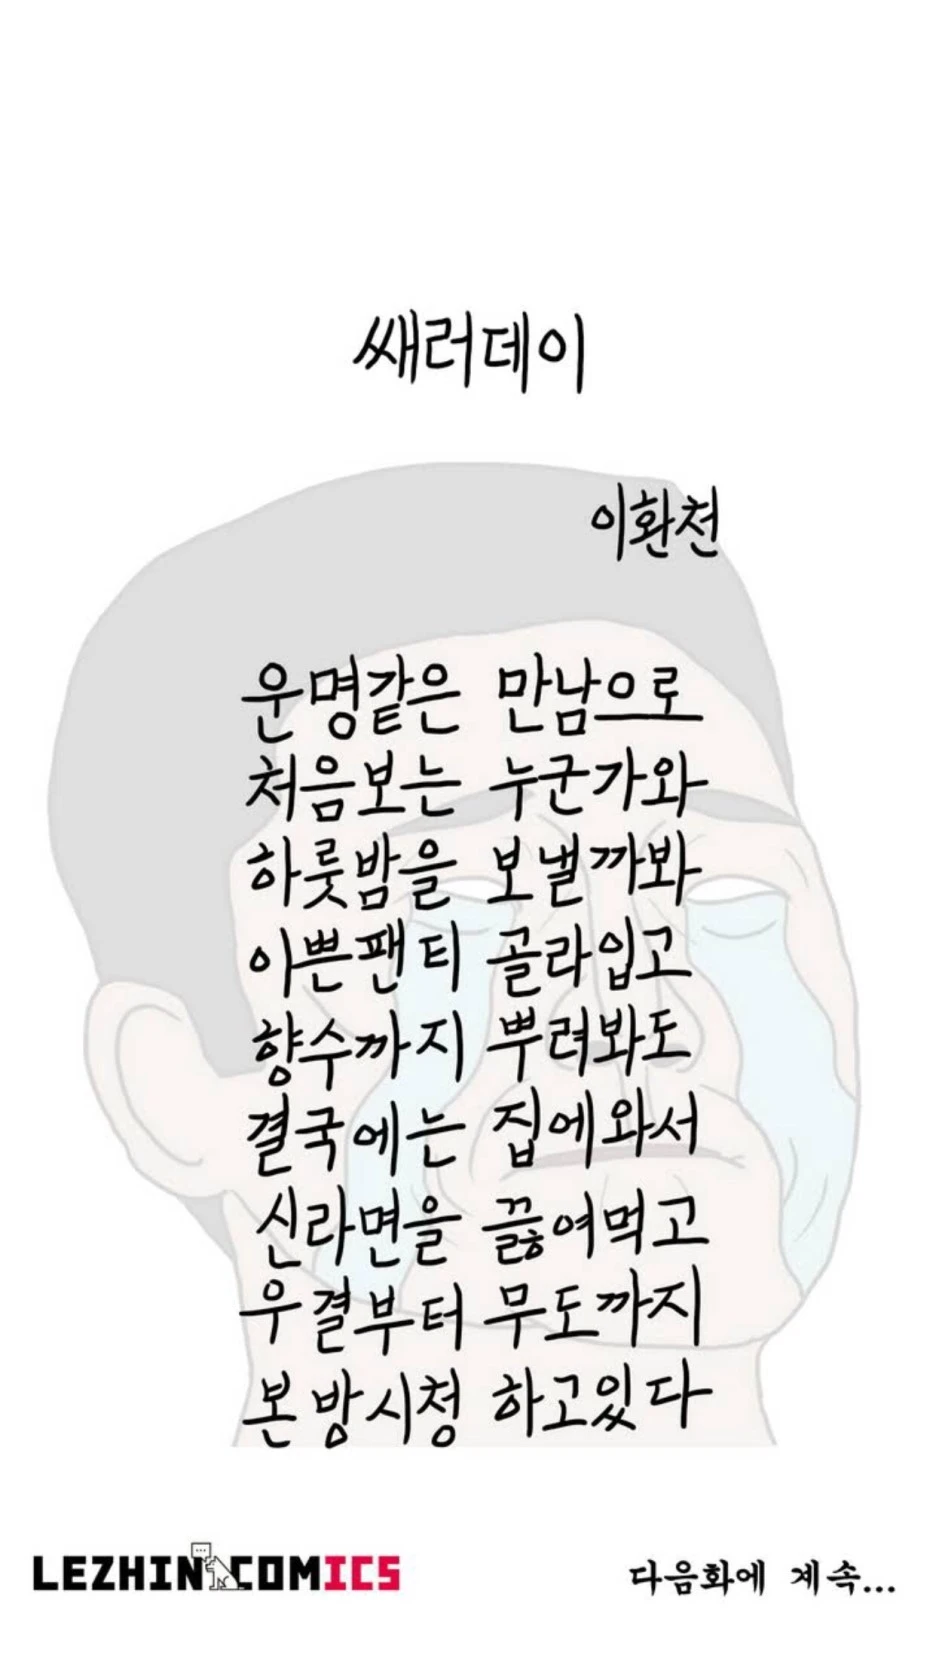 쌔러데이
이환천
운명같은 만남으로
처음보는 누군가와
하룻밤을 보낼까봐
이쁜팬티 골라입고
향수까지 뿌려봐도
결국에는 집에와서
신라면을 끓여먹고
우결부터 무도까지
본방시청 하고있다
LEZHIN COMICS
다음화에 계속...